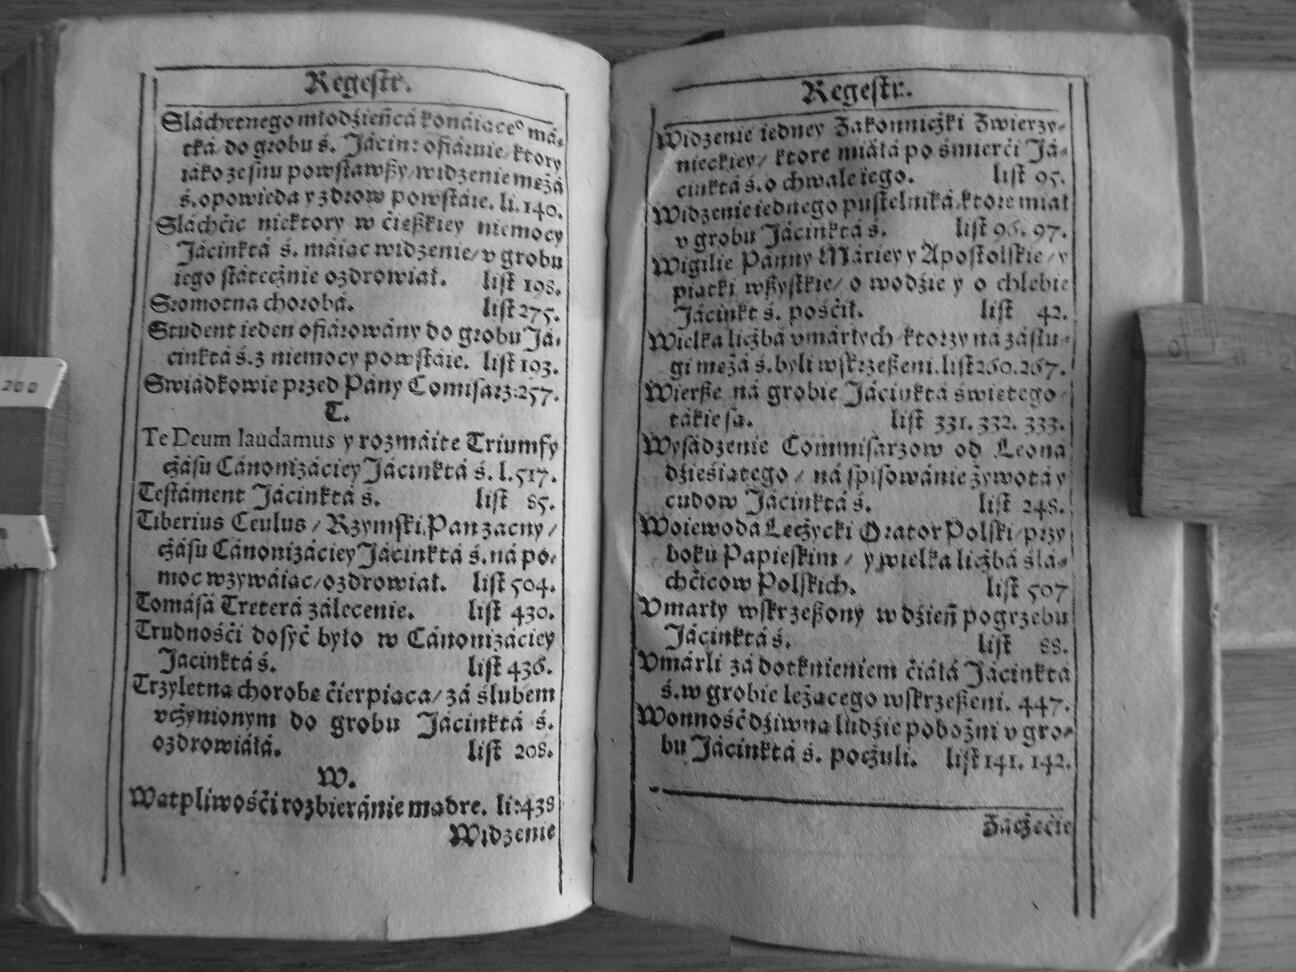 Regestr.
Sláchetnego młodźieńcá konáiąceº má-
tká do grobu ś. Jácin: ofiáruie/ ktory
iáko ze snu powstawßy/ widzenie mężá
ś. opowieda y zdrow powstáie. li. 140.
Sláchćic niektory w ćięßkiey niemocy
Jácinktá ś. máiąc widzenie/ v grobu
iego státecżnie ozdrowiał. list 198.
Sromotna chorobá. list 275.
Student ieden ofiárowány do grobu Já-
cinktá ś. z niemocy powstáie. list 193.
Swiádkowie przed Pány Comisarz: 257.
T.
Te Deum laudamus y rozmáite Triumfy
cżásu Cánonizáciey Jácinktá ś. l. 517.
Testáment Jácinktá ś. list 85.
Tiberius Ceulus / Rzymski Pan zacny /
cżásu Cánonizáciey Jácinktá ś. ná po-
moc wzywáiąc/ ozdrowiał. list 504.
Tomászá Treterá zálecenie. list 430.
Trudnośći dosyć było w Cánonizáciey
Jacinktá ś. list 436.
Trzyletna chorobę ćierpiąca/ zá ślubem
vcżynionym do grobu Jácinktá ś.
ozdrowiáłá. list 208.
W.
Wątpliwośći rozbieránie mądre. li: 438
Widzenie
Regestr.
Widzenie iedney Zakonnicżki Zwierzy-
nieckiey/ ktore miáłá po śmierći Já-
cinktá ś. o chwale iego. list 95.
Widzenie iednego pustelniká/ ktore miał
v grobu Jácinktá ś. list 96. 97.
Wigilie Panny Máriey y Apostolskie/ y
piątki wßystkie/ o wodźie y o chlebie
Jácinkt ś. pośćił. list 42.
Wielka licżbá vmárłych ktorzy ná zásłu-
gi mężá ś. byli wskrzeßeni. list 260. 267.
Wierße ná grobie Jácinktá świętego
tákie są. list 331. 332. 333.
Wysádzenie Commisarzow od Leoná
dźieśiątego / ná spisowánie żywotá y
cudow Jácinktá ś. list 248.
Woiewodá Łęcżycki Orator Polski/ przy
boku Papieskim / y wielka licżbá ślá-
chćicow Polskich. list 507
Vmarły wskrzeßony w dźień pogrzebu
Jácinktá ś. list 88.
Vmárli zá dotknieniem ćiáłá Jácinktá
ś. w grobie leżącego wskrzeßeni. 447.
Wonność dźiwną ludźie pobożni v gro-
bu Jácinktá ś. pocżuli. list 141. 142.
Zácżećie